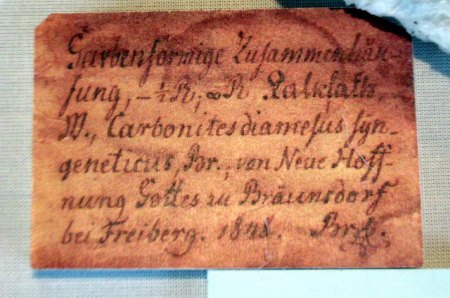 Garbenförmige Zusammenhäu-
fung, -½R, ∞R Kalkspath,
W., Carbonites diamesus syn-
geneticus, Br., von Neue Hoff-
nung Gottes zu Bräunsdorf
bei Freiberg. 1848.